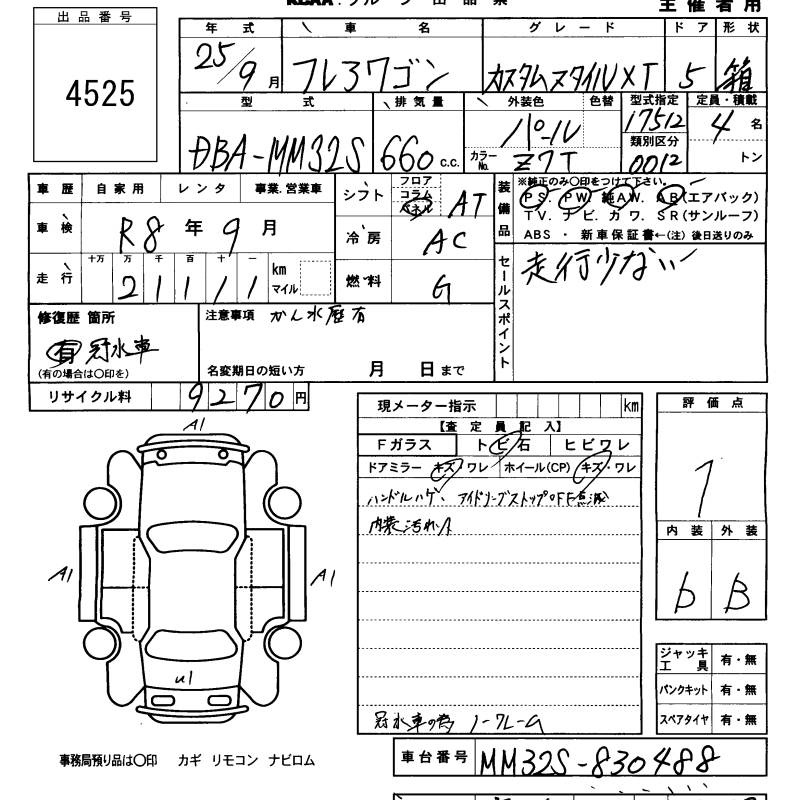 主催者用
出品番号
4525
年式 車名 グレード ドア 形状
25/9月 フレアワゴン カスタムスタイルXT 5 箱
型式 排気量 外装色 色替 型式指定 定員・積載
DBA-MM32S 660 c.c. パール 17512 4名
カラーNo. Z7T 類別区分 0012 トン
車歴 自家用 レンタ 事業.営業車
シフト フロア コラム パネル AT
車検 R8年9月
冷房 AC
走行 十万 万 千 百 十 一 km マイル
21111
燃料 G
装備品 ※純正のみ〇印をつけて下さい。
PS. PW. 純AW. AB(エアバック)
TV. ナビ. カワ. SR(サンルーフ)
ABS ・ 新車保証書←(注) 後日送りのみ
セールスポイント 走行少ない
修復歴 箇所
有 冠水車
(有の場合は〇印を)
注意事項 かん水歴有
名変期日の短い方 月 日まで
リサイクル料 9270円
現メーター指示 km
【査定員記入】
Fガラス トビ石 ヒビワレ
ドアミラー キズ・ワレ ホイール(CP) キズ・ワレ
ハンドルハゲ、アイドリングストップOFF点滅
内装汚れ小
冠水車の為 ノークレーム
評価点
1
内装 外装
b B
ジャッキ工具 有・無
パンクキット 有・無
スペアタイヤ 有・無
A1
A1
A1
u1
事務局預り品は〇印 カギ リモコン ナビロム
車台番号 MM32S-830488